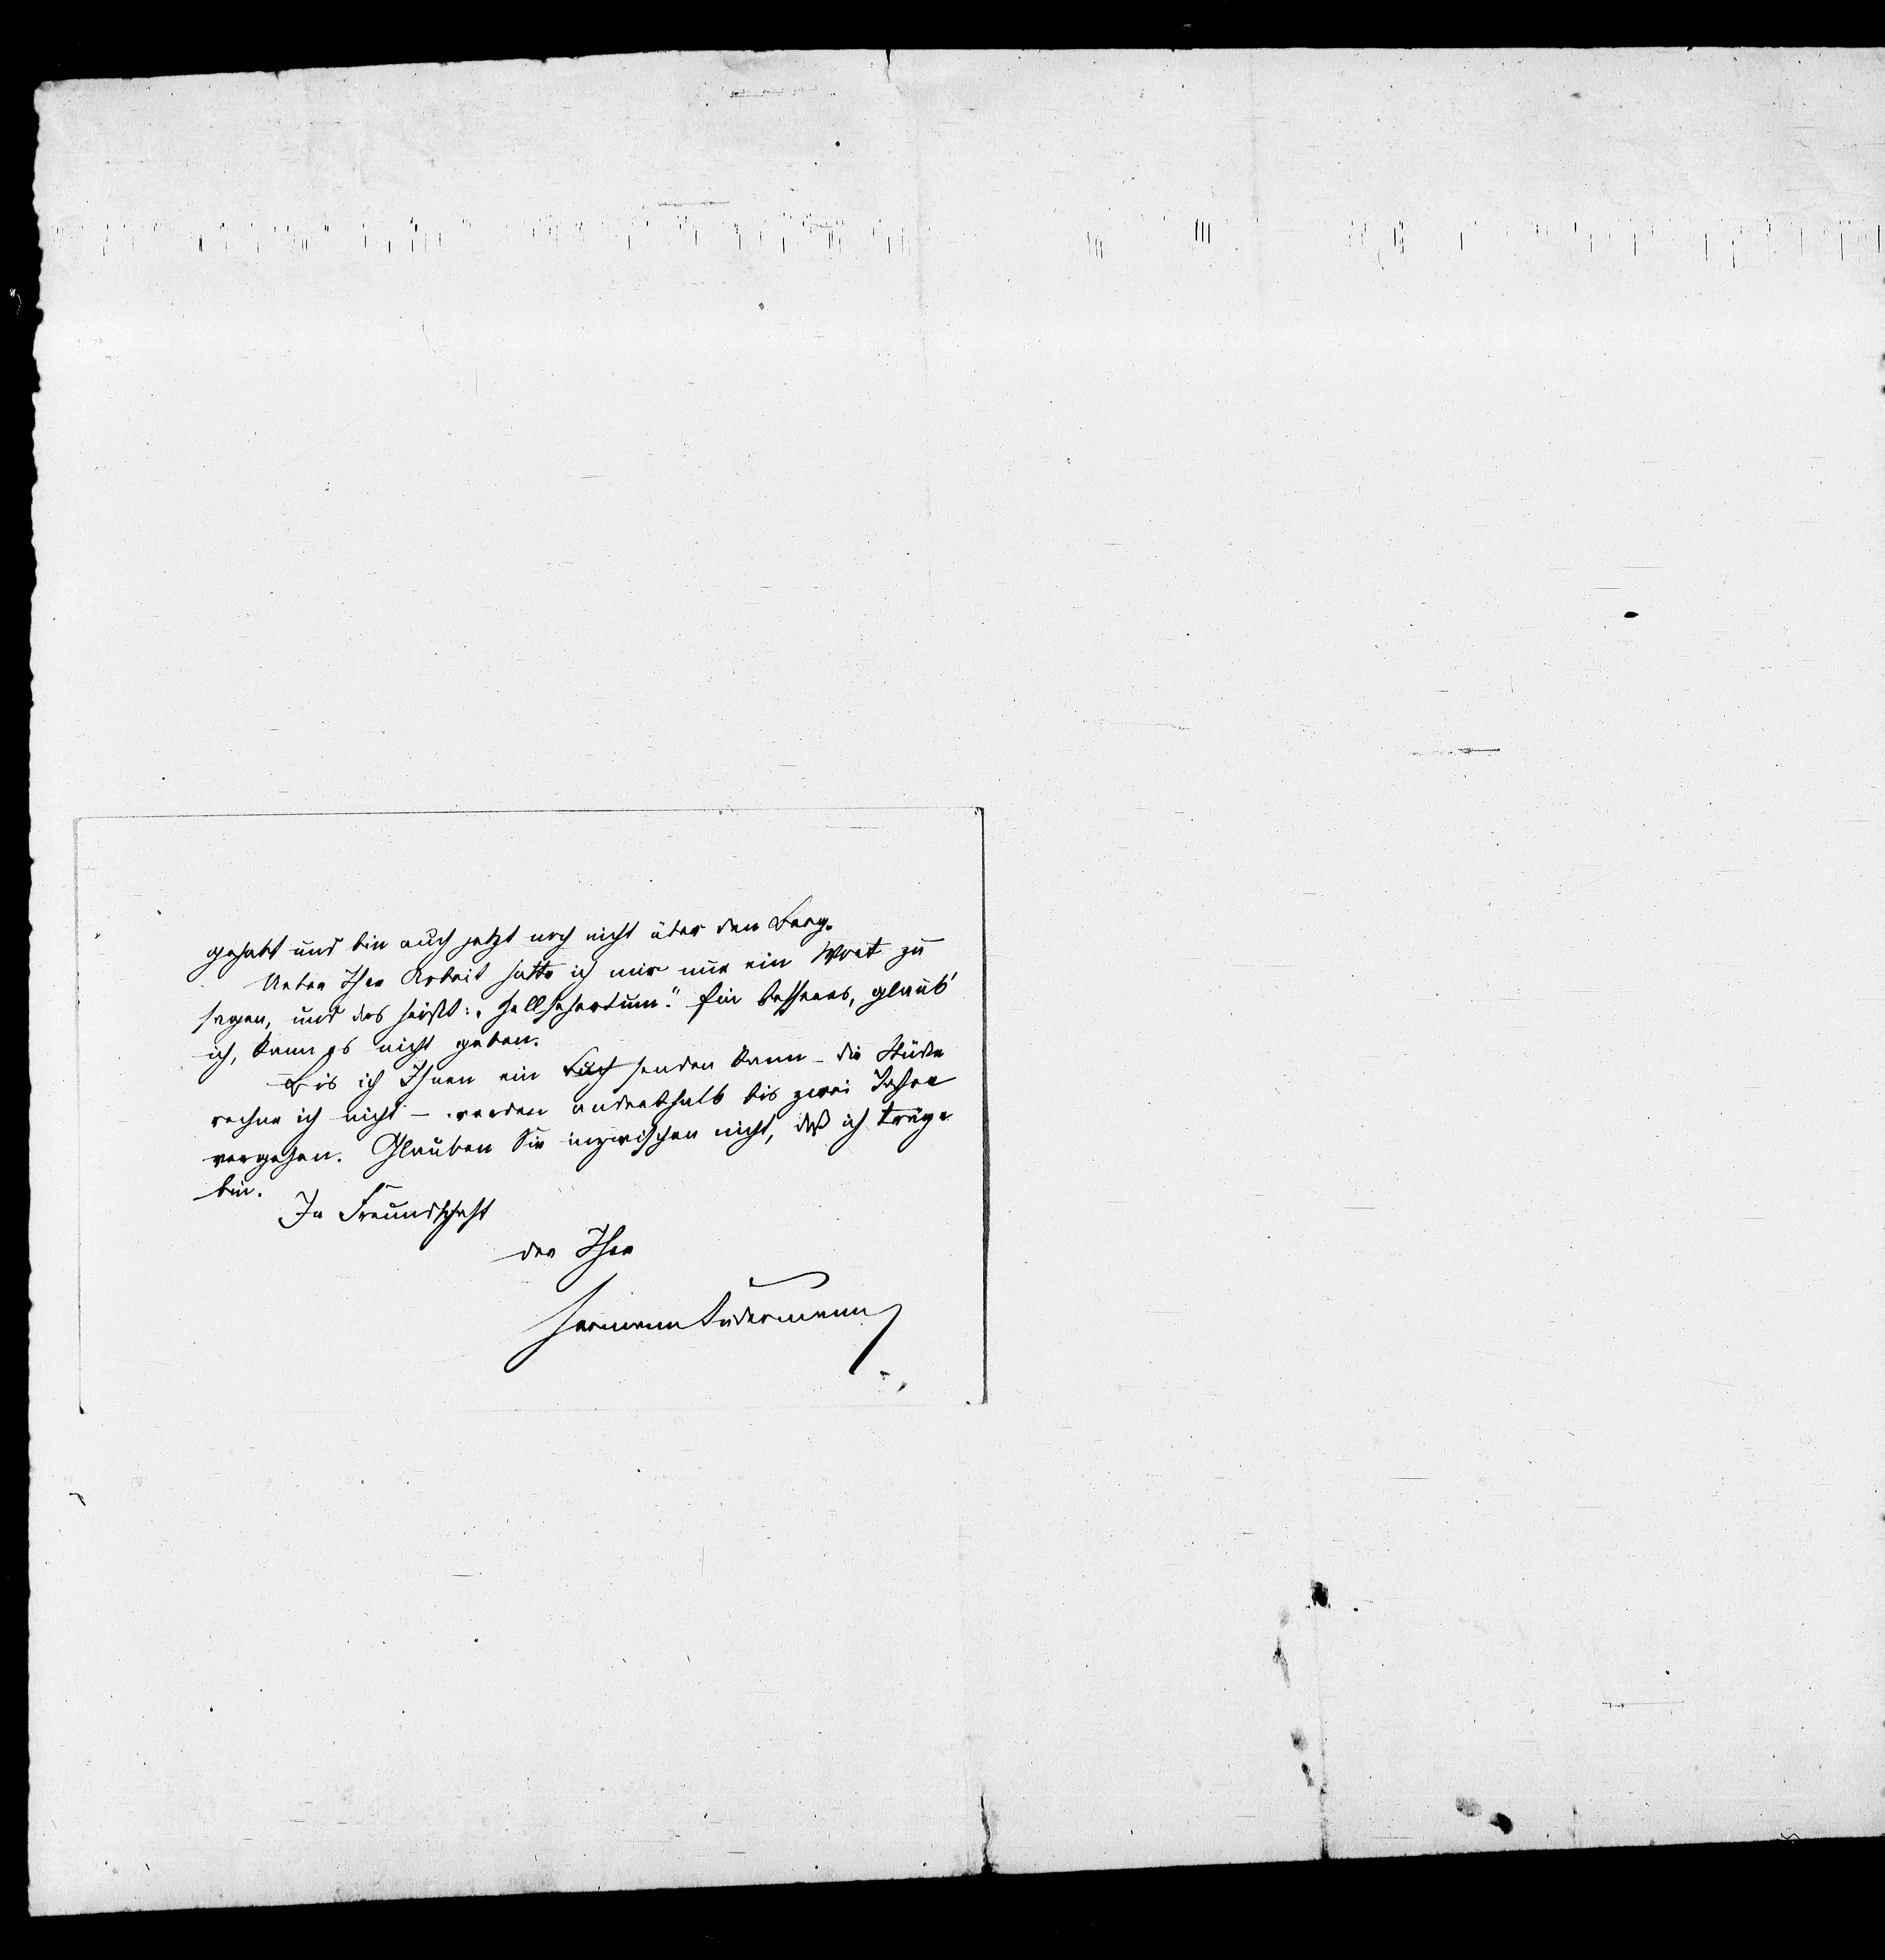 gehabt und bin auch jetzt noch nicht über den Berg.
Ueber Ihre Arbeit hatte ich mir nur ein Wort zu
sagen, und das heißt: „Hellsehertum." Ein besseres, glaub'
ich, kann es nicht geben.
Bis ich Ihnen ein Buch senden kann – die Stücke
rechne ich nicht – werden anderthalb bis zwei Jahre
vergehen. Glauben Sie inzwischen nicht, daß ich träge
bin.
In Freundschaft
der Ihre
Hermann Sudermann